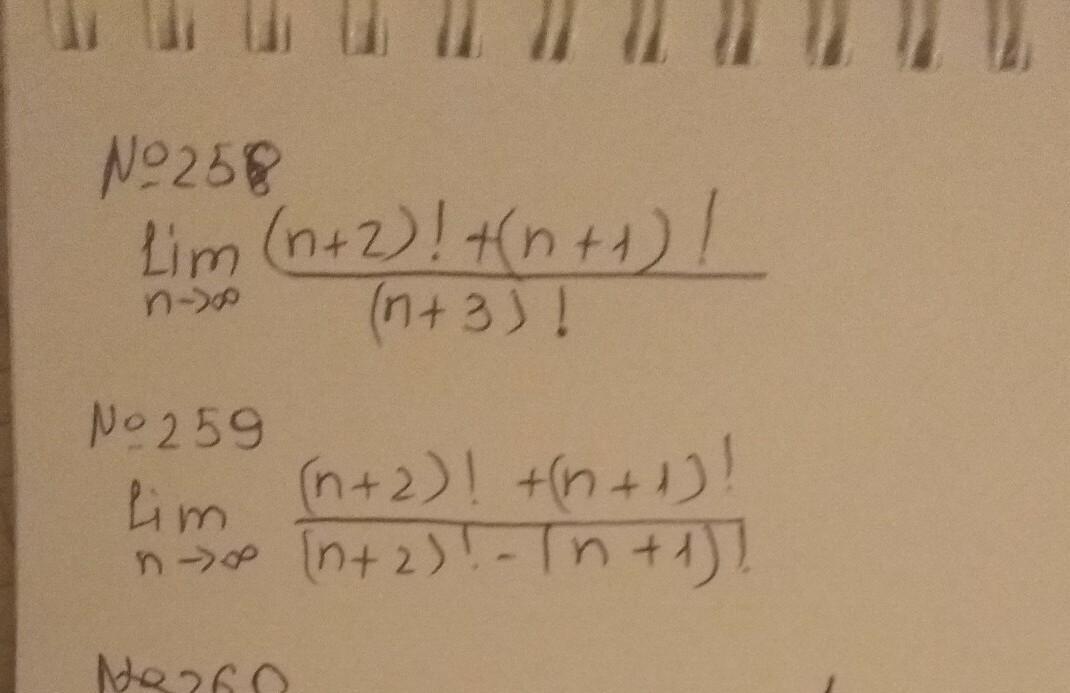 №258
lim (n+2)! +(n+1)!
n→∞ (n+3)!
№259
lim (n+2)! +(n+1)!
n→∞ (n+2)! - (n+1)!
№260